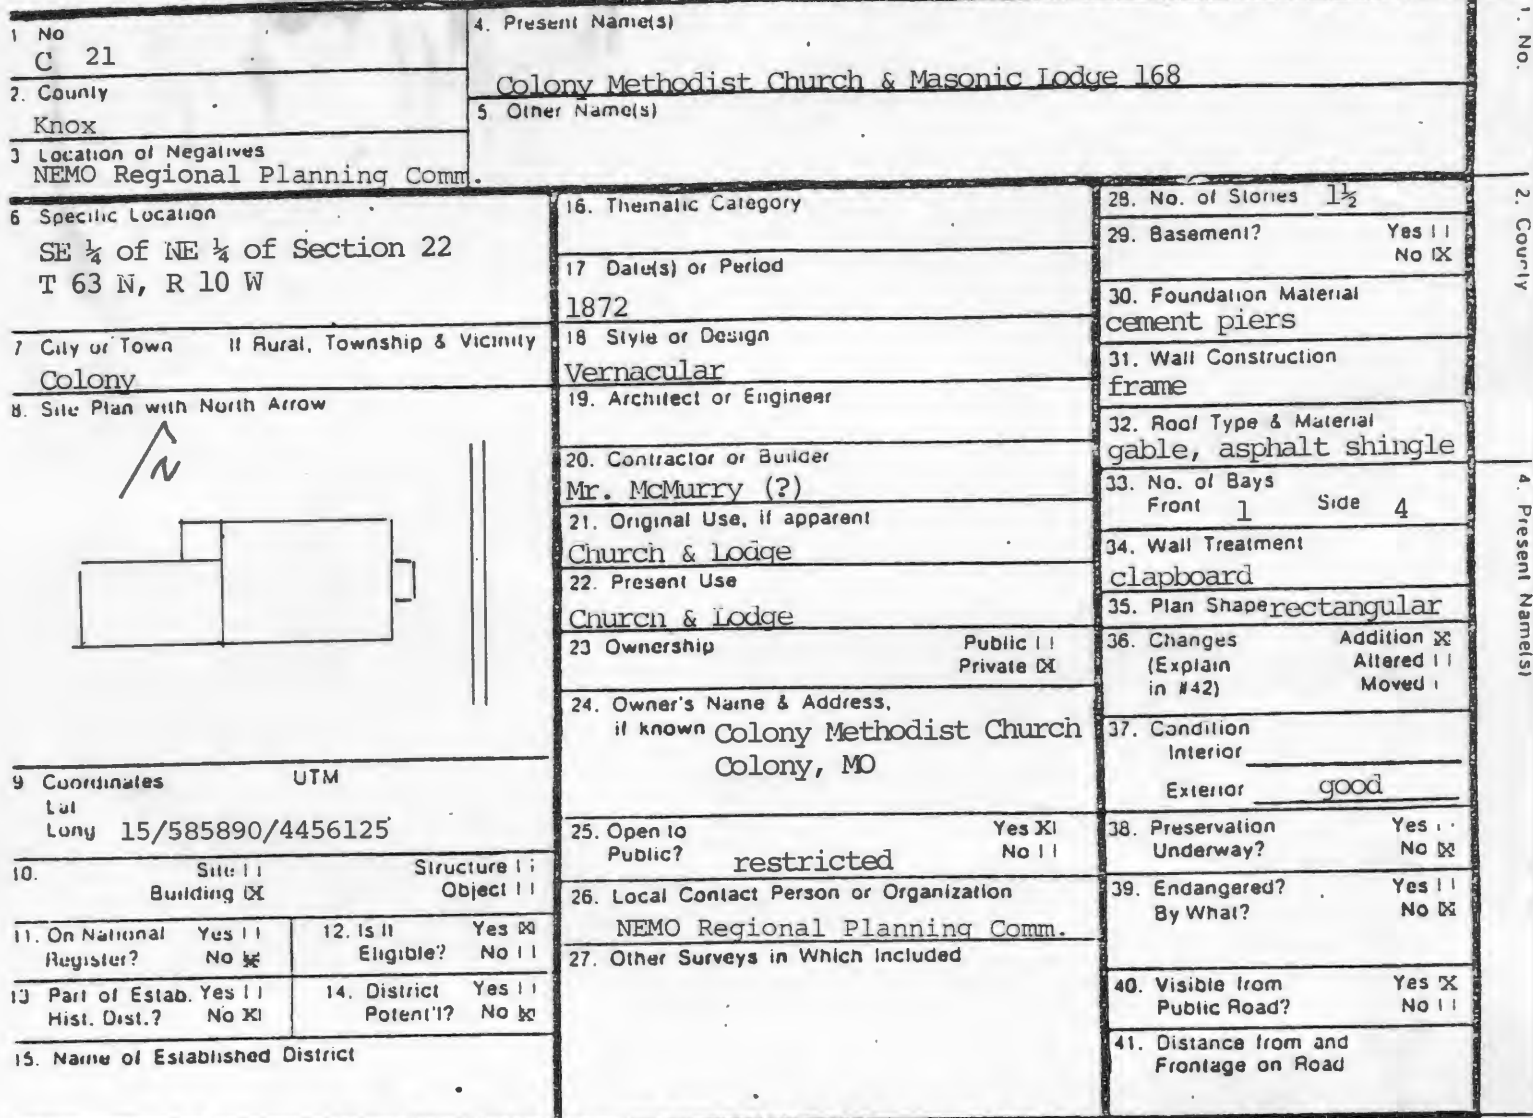 1 No
C 21
2. County
Knox
3 Location of Negatives
NEMO Regional Planning Comm.
4. Present Name(s)
Colony Methodist Church & Masonic Lodge 168
5 Other Name(s)
6 Specific Location
SE ¼ of NE ¼ of Section 22
T 63 N, R 10 W
7 City or Town If Rural, Township & Vicinity
Colony
8. Site Plan with North Arrow
N
9 Coordinates UTM
Lat
Long 15/585890/4456125
10. Site | | Structure | |
Building [X] Object | |
11. On National Yes | |
Register? No [X]
12. Is It Yes [X]
Eligible? No | |
13 Part of Estab. Yes | |
Hist. Dist.? No [X]
14. District Yes | |
Potent'l? No [X]
15. Name of Established District
16. Thematic Category
17 Date(s) or Period
1872
18 Style or Design
Vernacular
19. Architect or Engineer
20. Contractor or Builder
Mr. McMurry (?)
21. Original Use, if apparent
Church & Lodge
22. Present Use
Church & Lodge
23 Ownership Public | |
Private [X]
24. Owner's Name & Address,
if known Colony Methodist Church
Colony, MO
25. Open to Yes [X]
Public? restricted No | |
26. Local Contact Person or Organization
NEMO Regional Planning Comm.
27. Other Surveys in Which Included
28. No. of Stories 1½
29. Basement? Yes | |
No [X]
30. Foundation Material
cement piers
31. Wall Construction
frame
32. Roof Type & Material
gable, asphalt shingle
33. No. of Bays
Front 1 Side 4
34. Wall Treatment
clapboard
35. Plan Shape rectangular
36. Changes Addition [X]
(Explain Altered | |
in #42) Moved |
37. Condition
Interior
Exterior good
38. Preservation Yes
Underway? No [X]
39. Endangered? Yes | |
By What? No [X]
40. Visible from Yes [X]
Public Road? No | |
41. Distance from and
Frontage on Road
1. No.
2. County
4. Present Name(s)